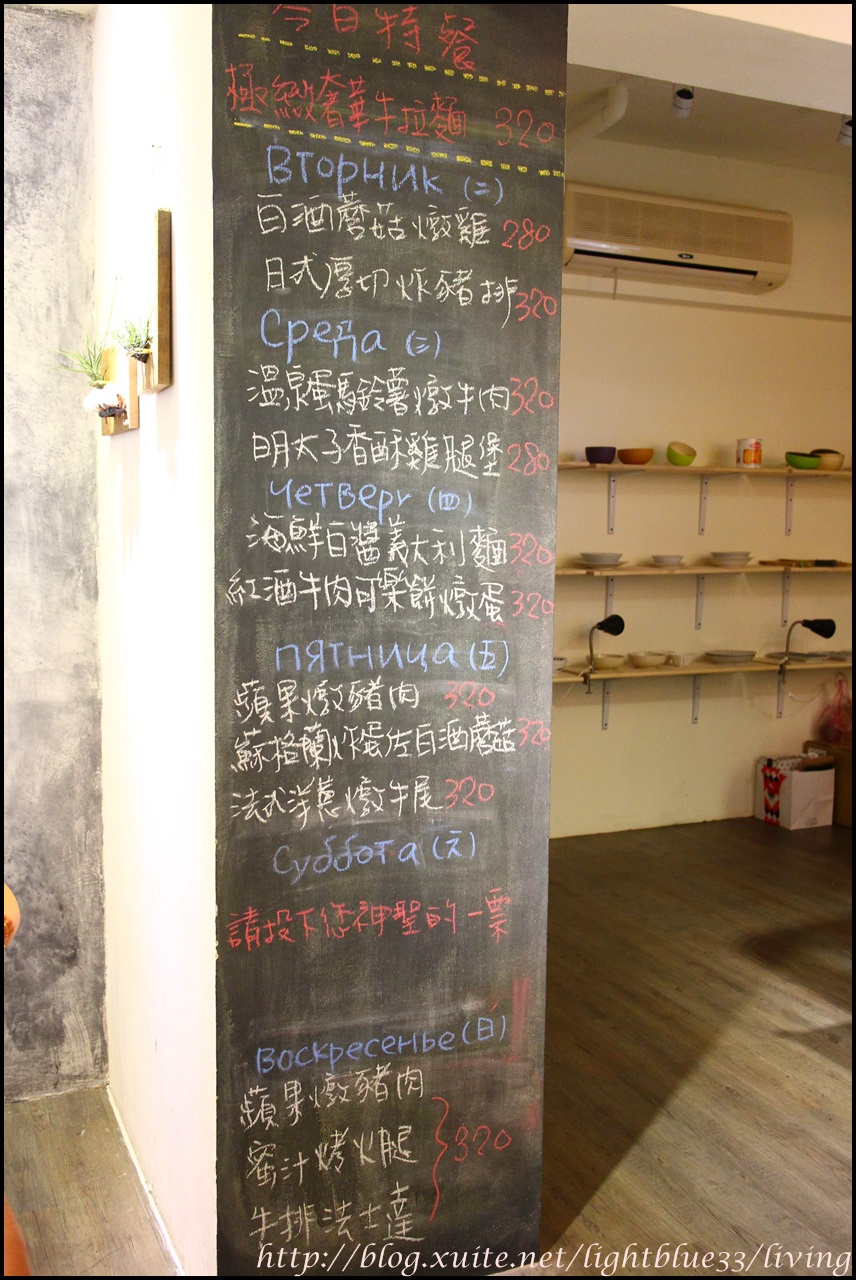 今日特餐
極緻奢華牛拉麵 320
Вторник (二)
白酒蘑菇燉雞 280
日式厚切炸豬排 320
Среда (三)
溫泉蛋馬鈴薯燉牛肉 320
明太子香酥雞腿堡 280
Четверг (四)
海鮮白醬義大利麵 320
紅酒牛肉可樂餅燉蛋 320
пятница (五)
蘋果燉豬肉 320
蘇格蘭炸蛋佐白酒蘑菇 320
法式洋蔥燉牛尾 320
Суббота (六)
請投下您神聖的一票
Воскресенье (日)
蘋果燉豬肉
蜜汁烤火腿 320
牛排法士達
http://blog.xuite.net/lightblue33/living